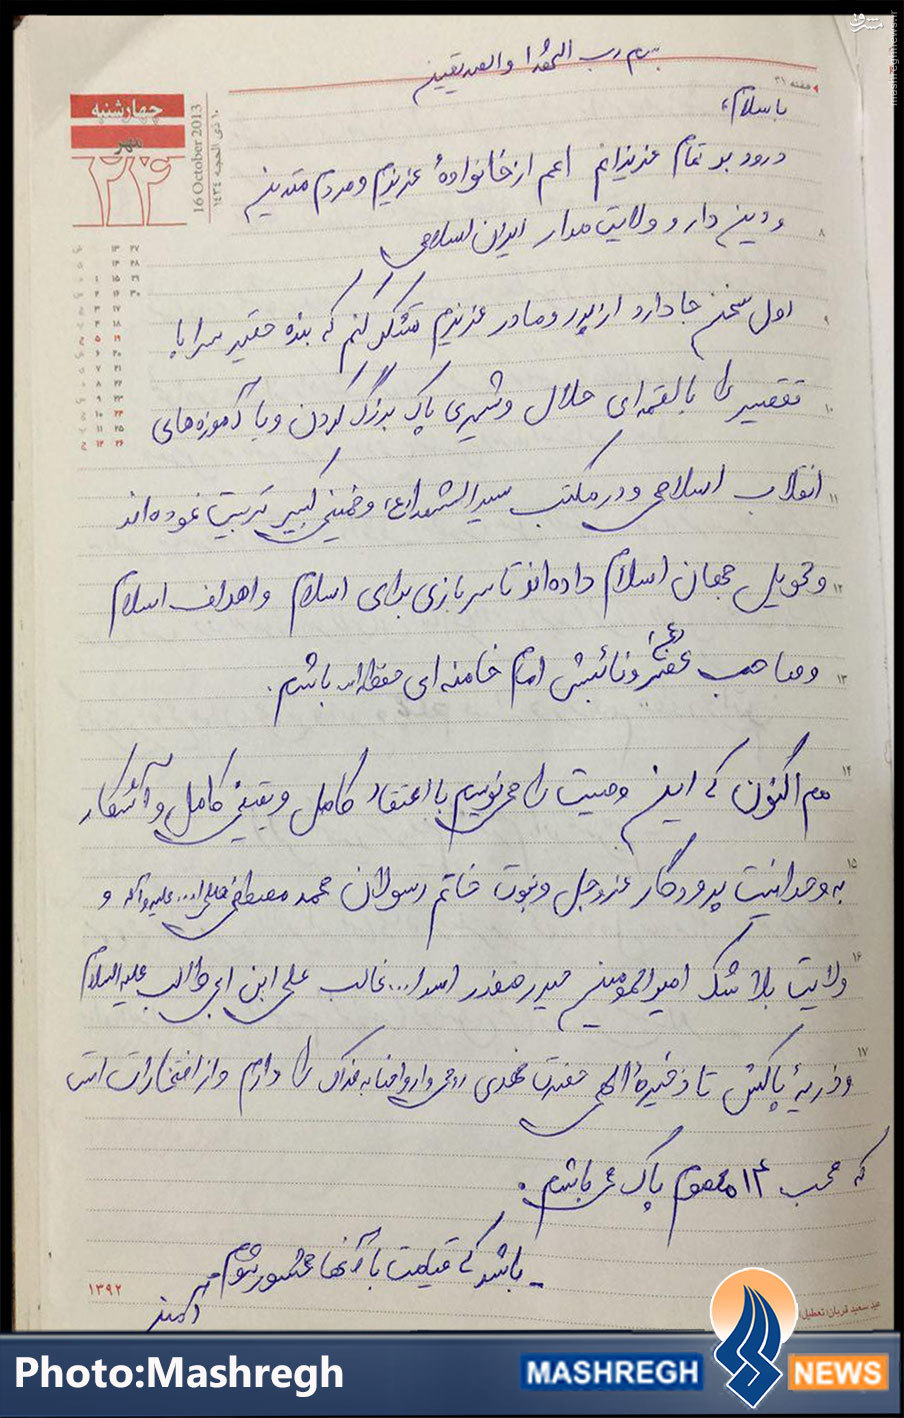 بسم رب الشهدا و الصدیقین
هفته ۳۱
چهارشنبه
مهر
۲۴
16 October 2013
۱۰ ذی الحجه ۱۴۳۴
با سلام؛
درود بر تمام عزیزانم اعم از خانوادهٔ عزیزم و مردم متدین
و دین دار و ولایت مدار ایران اسلامی
اول سخنم جا دارد از پدر و مادر عزیزم تشکر کنم که بنده حقیر سراپا
تقصیر را با لقمه‌ای حلال و شیری پاک بزرگ کردن و با آموزه‌های
انقلاب اسلامی و در مکتب سیدالشهدا(ع) و خمینی کبیر تربیت نموده‌اند
و تحویل جهان اسلام داده‌اند تا سربازی برای اسلام و اهداف اسلام
و صاحب عصر(عج) و نائبش امام خامنه‌ای حفظه‌اله باشم.
هم اکنون که این وصیت را می‌نویسم با اعتقاد کامل و یقینی کامل و آشکار
به وحدانیت پروردگار عزوجل و نبوت خاتم رسولان محمد مصطفی صلی‌ا... علیه و آله و
ولایت بلاشک امیرالمومنین حیدر صفدر اسدا... غالب علی ابن ابی طالب علیه السلام
و ذریهٔ پاکش تا ذخیرهٔ الهی حضرت مهدی روحی و ارواحنا به فداک را دارم و از افتخارات است
که محب ۱۴ معصوم پاک می باشم.
باشد که قیامت با آنها محشور شوم
۱۳۹۲
عید سعید قربان (تعطیل)
Photo:Mashregh
MASHREGH NEWS
مشرق
mashreghnews.ir